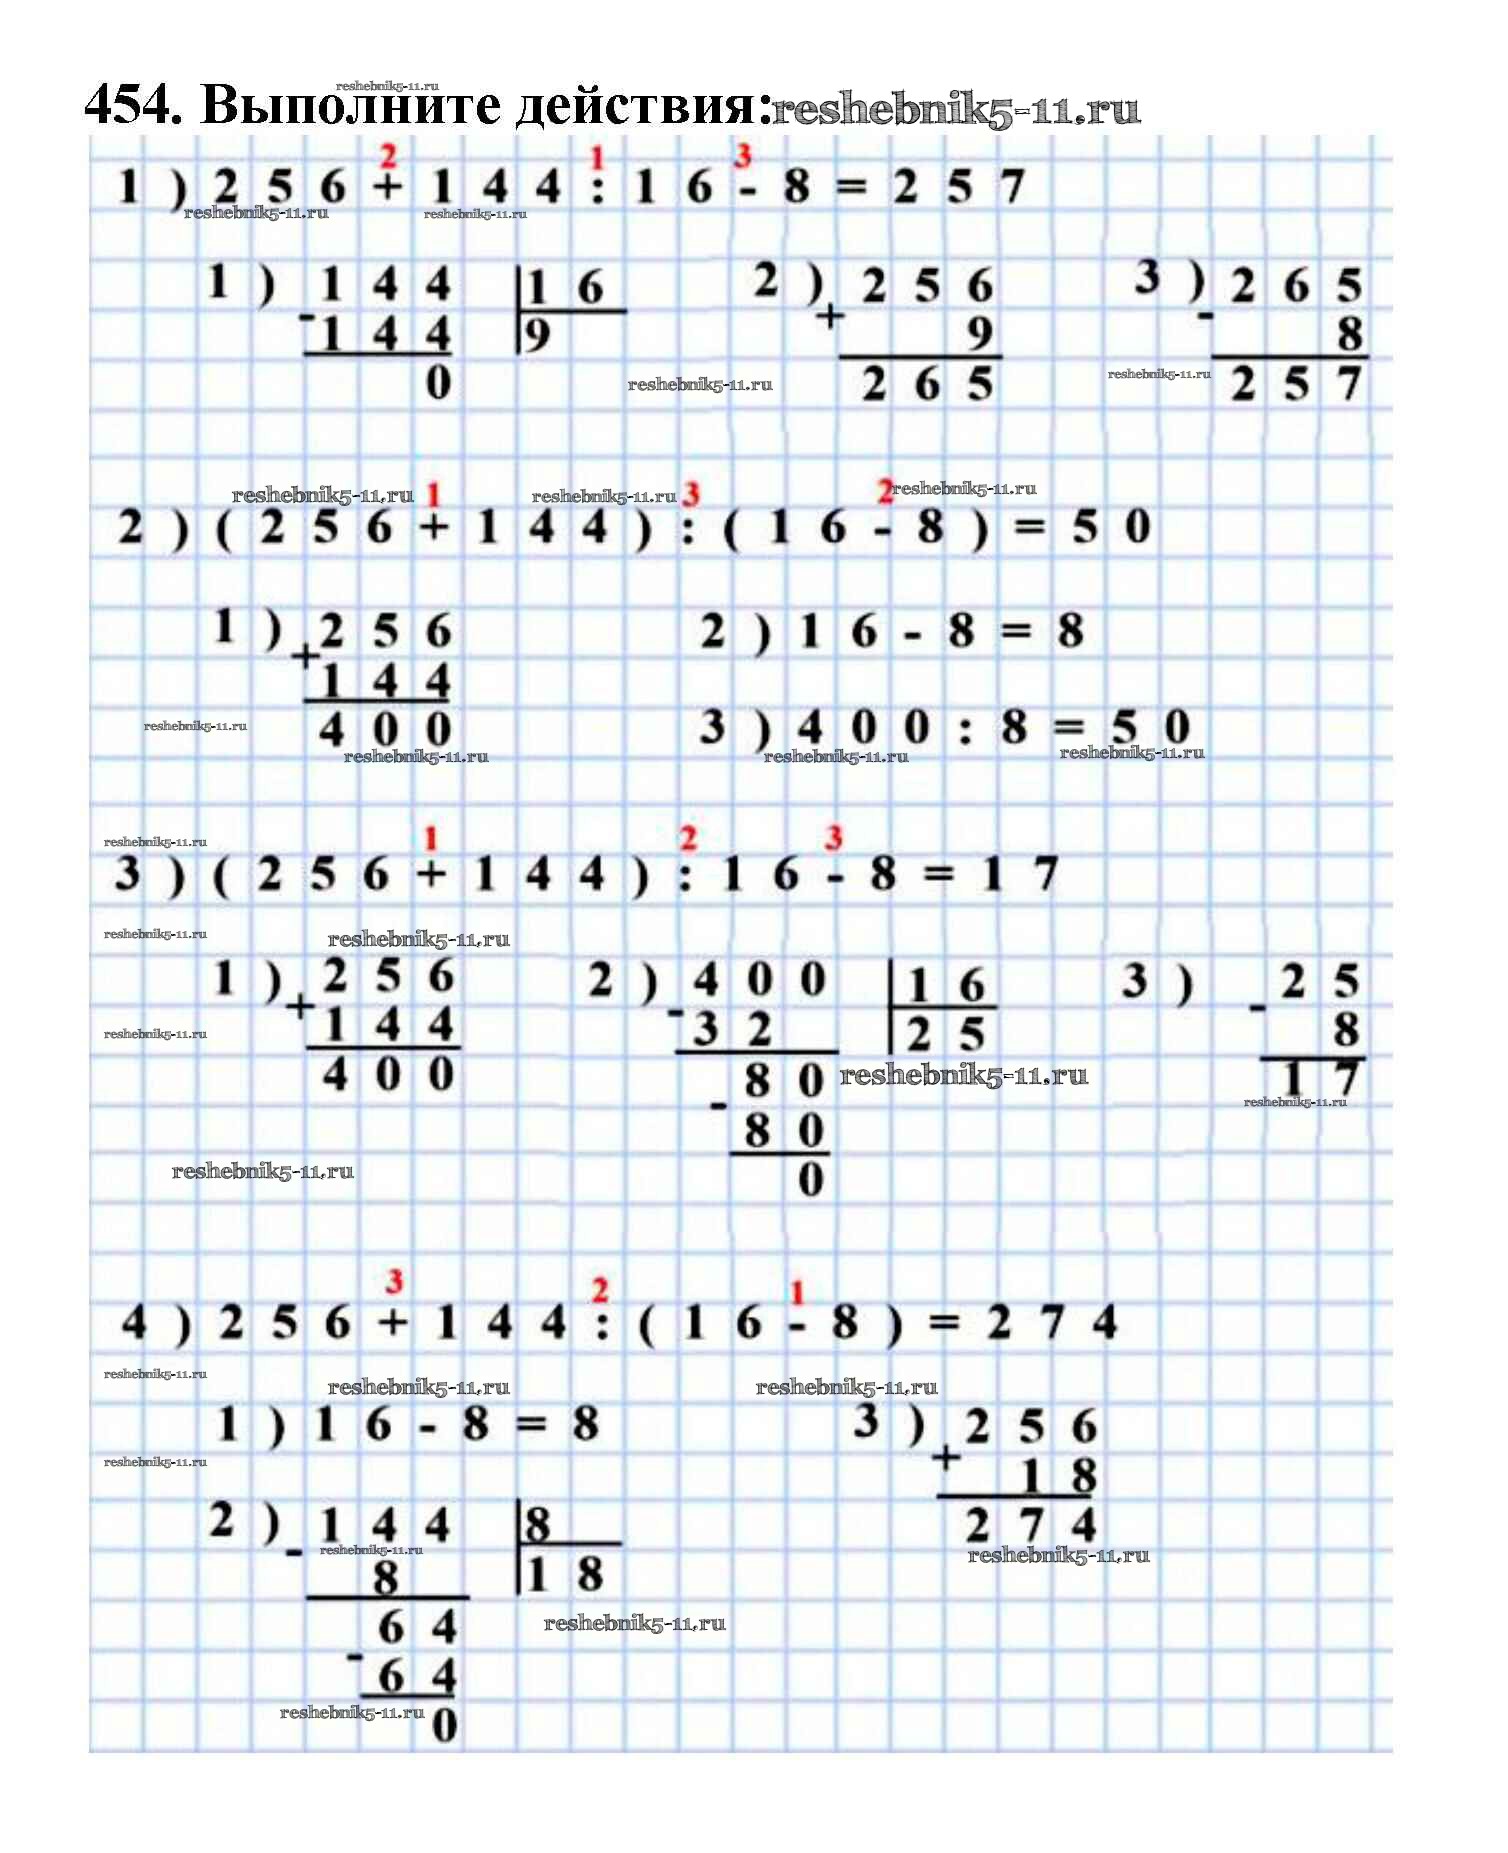 reshebnik5-11.ru
454. Выполните действия:reshebnik5-11.ru
2 1 3
1) 256+144:16-8=257
reshebnik5-11.ru reshebnik5-11.ru
1) 144 16 2) 256 3) 265
- + -
144 9 9 8
0 reshebnik5-11.ru 265 reshebnik5-11.ru 257
reshebnik5-11.ru 1 reshebnik5-11.ru 3 2 reshebnik5-11.ru
2) (256+144):(16-8)=50
1) 256 2) 16-8=8
+
144
reshebnik5-11.ru 400 3) 400:8=50
reshebnik5-11.ru reshebnik5-11.ru reshebnik5-11.ru
reshebnik5-11.ru 1 2 3
3) (256+144):16-8=17
reshebnik5-11.ru reshebnik5-11.ru
1) 256 2) 400 16 3) 25
+ - -
reshebnik5-11.ru 144 32 25 8
400 80 reshebnik5-11.ru 17
reshebnik5-11.ru
- 80
reshebnik5-11.ru 0
3 2 1
4) 256+144:(16-8)=274
reshebnik5-11.ru reshebnik5-11.ru reshebnik5-11.ru
1) 16-8=8 3) 256
+
reshebnik5-11.ru 18
2) 144 8 274
- reshebnik5-11.ru reshebnik5-11.ru
8 18
64 reshebnik5-11.ru
- 64
reshebnik5-11.ru 0